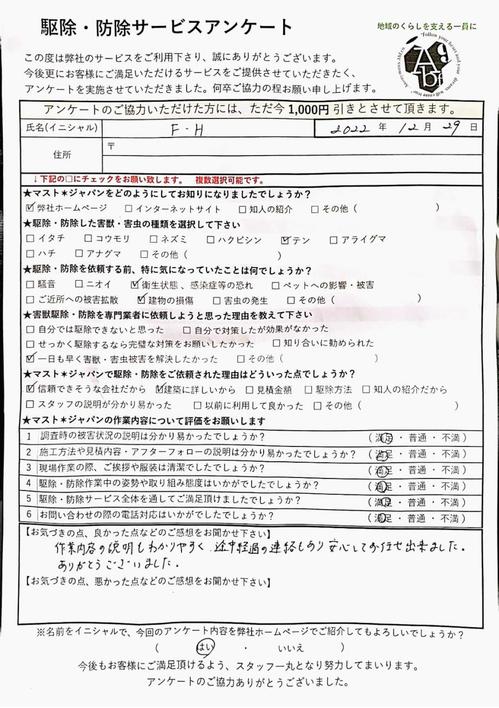 駆除・防除サービスアンケート
地域のくらしを支える一員に
この度は弊社のサービスをご利用下さり、誠にありがとうございます。
今後更にお客様にご満足いただけるサービスをご提供させていただきたく、
アンケートを実施させていただきました。何卒ご協力の程お願い申し上げます。
アンケートのご協力いただけた方には、ただ今1,000円引きとさせて頂きます。
氏名(イニシャル) F・H 2022年12月29日
住所 〒
↓下記の□にチェックをお願い致します。 複数選択可能です。
★マスト＊ジャパンをどのようにしてお知りになりましたでしょうか？
☑弊社ホームページ □インターネットサイト □知人の紹介 □その他（ ）
★駆除・防除した害獣・害虫の種類を選択して下さい
□イタチ □コウモリ □ネズミ □ハクビシン ☑テン □アライグマ
□ハチ □アナグマ □その他（ ）
★駆除・防除を依頼する前、特に気になっていたことは何でしょうか？
□騒音 □ニオイ ☑衛生状態、感染症等の恐れ □ペットへの影響・被害
□ご近所への被害拡散 ☑建物の損傷 □害虫の発生 □その他（ ）
★害獣駆除・防除を専門業者に依頼しようと思った理由を教えて下さい
□自分では駆除できないと思った □自分で対策したが効果がなかった
□せっかく駆除するなら完璧な対策をお願いしたかった □知り合いに勧められた
☑一日も早く害獣・害虫被害を解決したかった □その他（ ）
★マスト＊ジャパンで駆除・防除をご依頼された理由はどういった点でしょうか？
☑信頼できそうな会社だから ☑建築に詳しいから □見積金額 □駆除方法 □知人の紹介だから
□スタッフの説明が分かり易かった □以前に利用して良かった □その他（ ）
★マスト＊ジャパンの作業内容について評価をお願いします
1 調査時の被害状況の説明は分かり易かったでしょうか？ （満足・普通・不満）
2 施工方法や見積内容・アフターフォローの説明は分かり易かったでしょうか？ （満足・普通・不満）
3 現場作業の際、ご挨拶や服装は清潔でしたでしょうか？ （満足・普通・不満）
4 駆除・防除作業中の姿勢や取り組み態度はいかがでしたでしょうか？ （満足・普通・不満）
5 駆除・防除サービス全体を通してご満足頂けましたでしょうか？ （満足・普通・不満）
6 お問い合わせの際の電話対応はいかがでしたでしょうか？ （満足・普通・不満）
【お気づきの点、良かった点などのご感想をお聞かせ下さい】
作業内容の説明もわかりやすく、途中経過の連絡もあり安心してお任せ出来ました。
ありがとうございました。
【お気づきの点、悪かった点などのご感想をお聞かせ下さい】
※名前をイニシャルで、今回のアンケート内容を弊社ホームページでご紹介してもよろしいでしょうか？
（ はい ・ いいえ ）
今後もお客様にご満足頂けるよう、スタッフ一丸となり努力してまいります。
アンケートのご協力ありがとうございました。